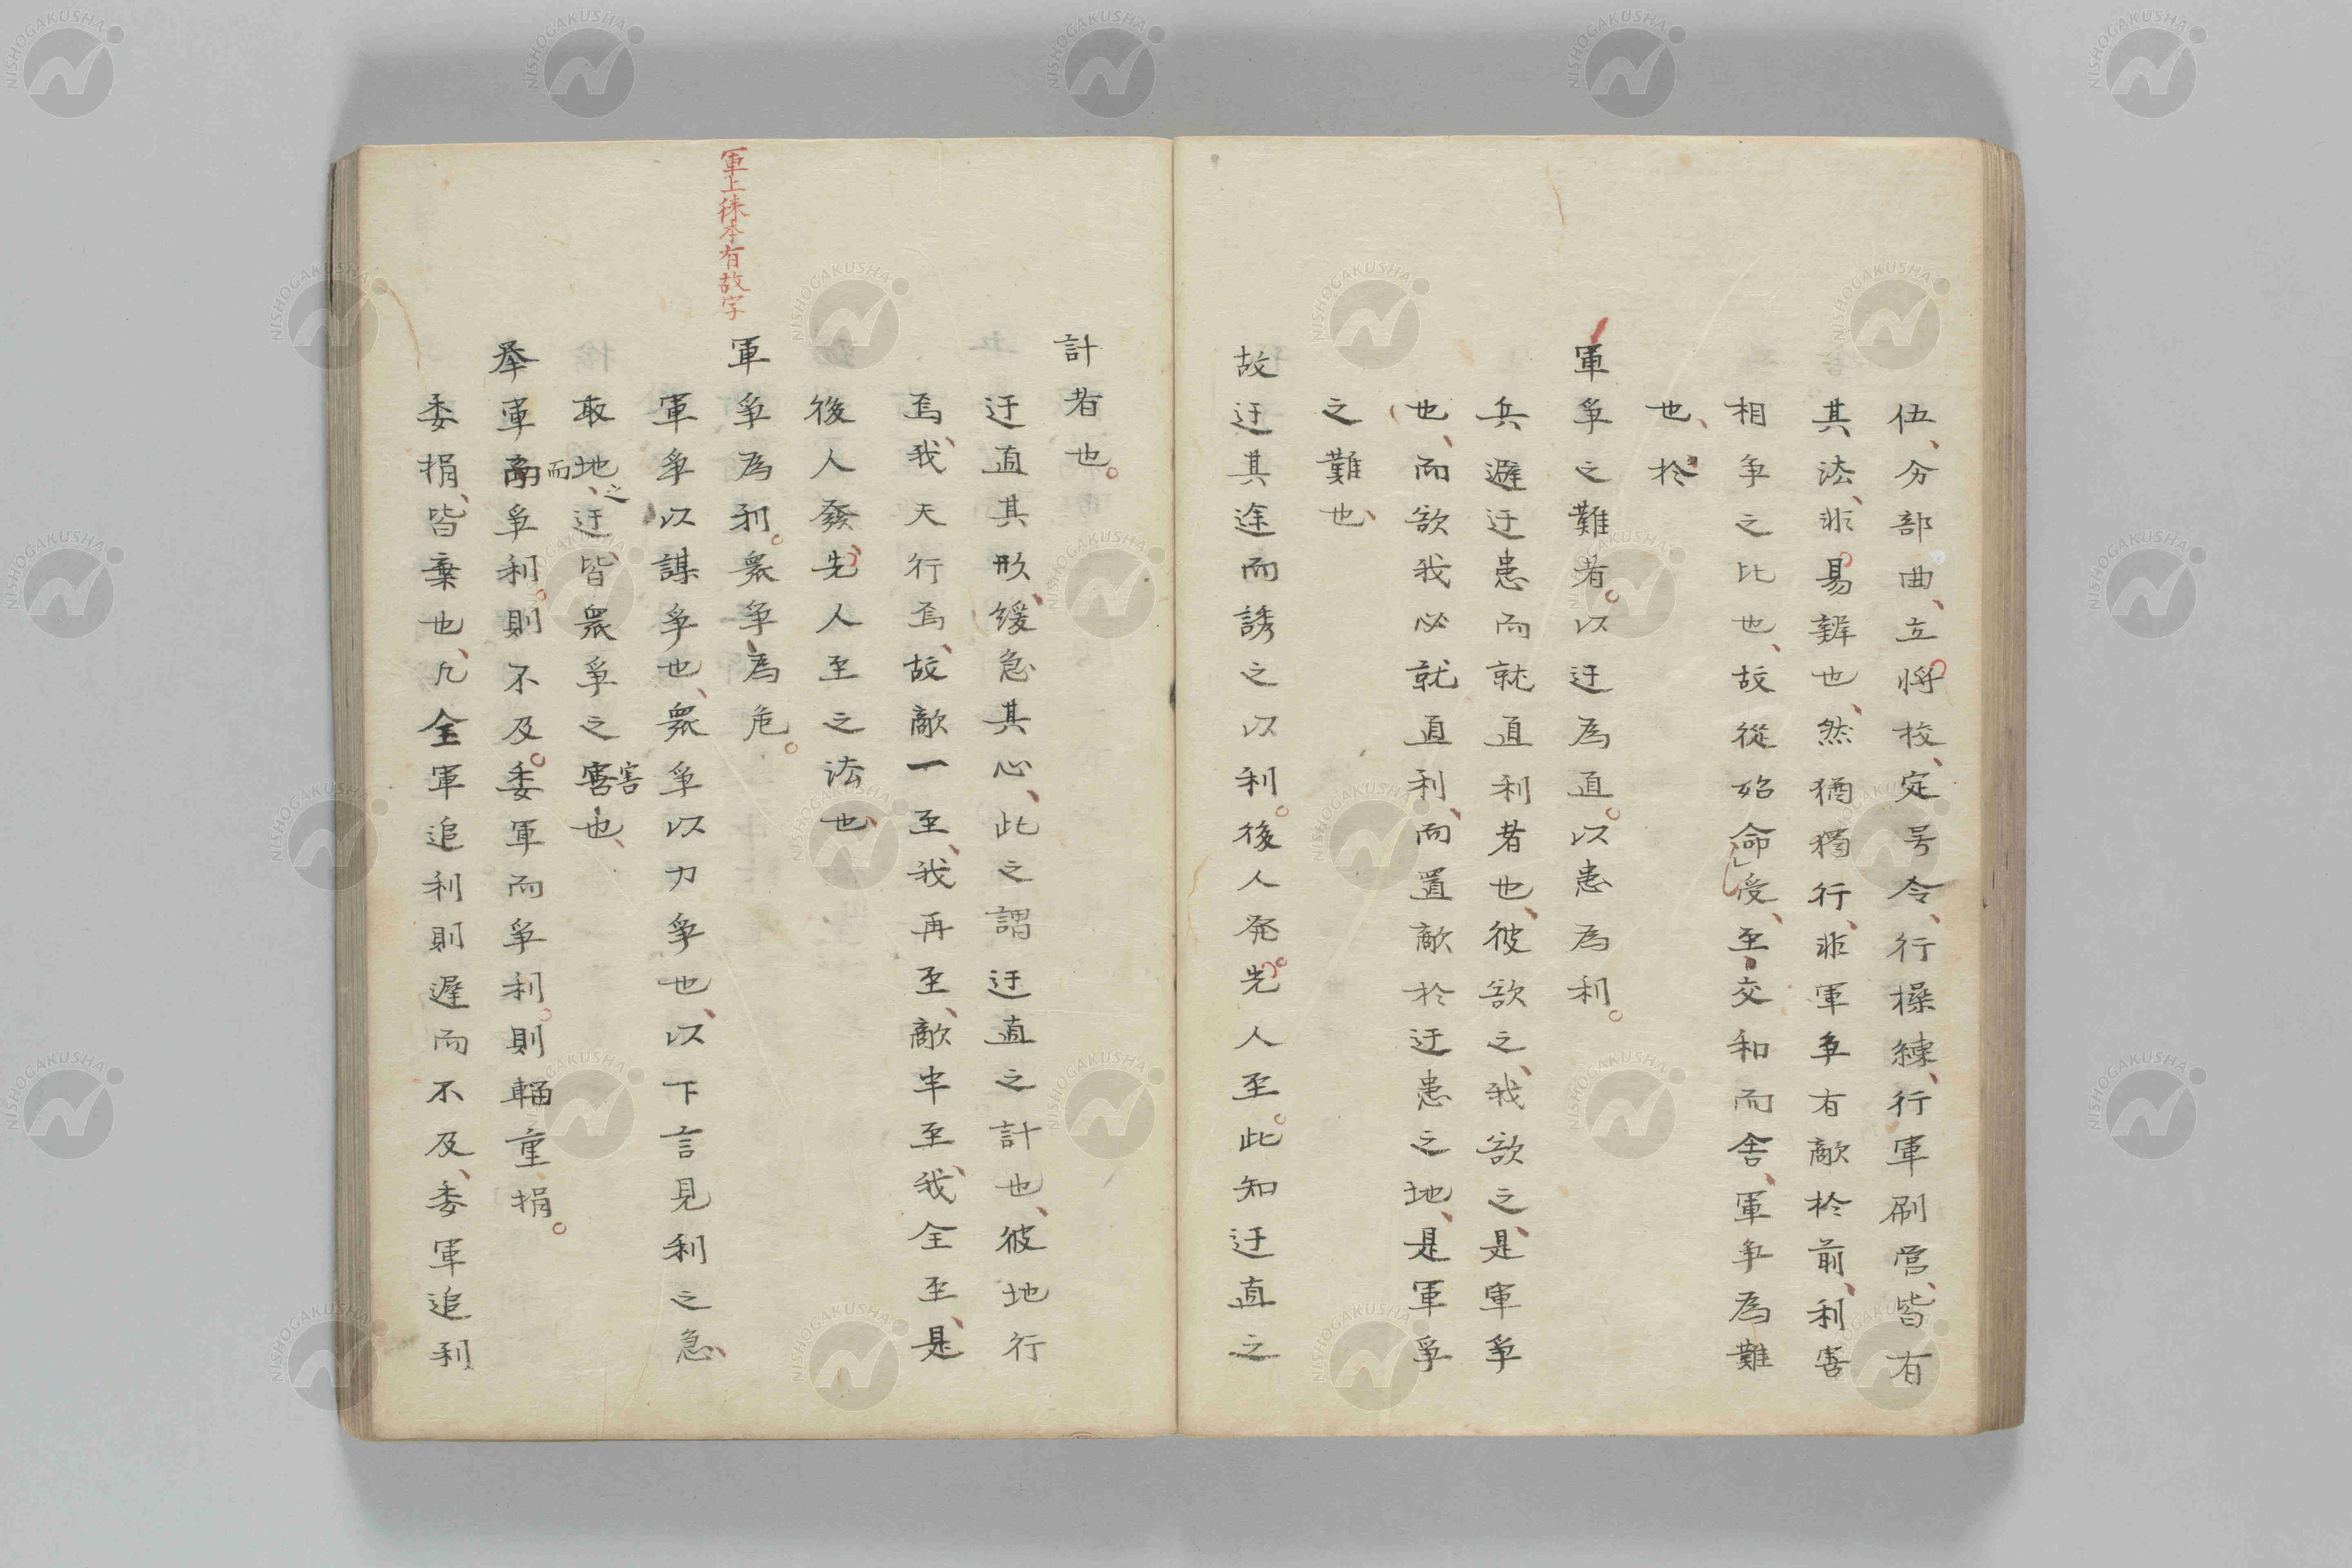 伍、分部曲、立将校、定号令、行操練、行軍刷営、皆有
其法、非易辨也、然猶獨行、非軍争有敵於前、利害
相争之比也、故從始命受、至交和而舎、軍争為難
也、於
軍争之難者。以迂為直。以患為利。
兵避迂患而就直利者也、彼欲之、我欲之、是軍争
也、而欲我必就直利、而置敵於迂患之地、是軍爭
之難也、
故迂其途而誘之以利。後人発。先人至。此知迂直之
計者也。
迂直其形、緩急其心、此之謂迂直之計也、彼地行
焉、我天行焉、故敵一至、我再至、敵半至、我全至、是
後人發、先人至之法也、
軍上徠本有故字
軍爭為利。衆爭為危。
軍爭以謀爭也、衆爭以力爭也、以下言見利之急、
取地、之迂、皆衆爭之害害也、
挙軍而爭利。則不及。委軍而爭利。則輜重捐。
委捐、皆棄也、凡全軍追利則遲而不及、委軍追利
NISHOGAKUSHA